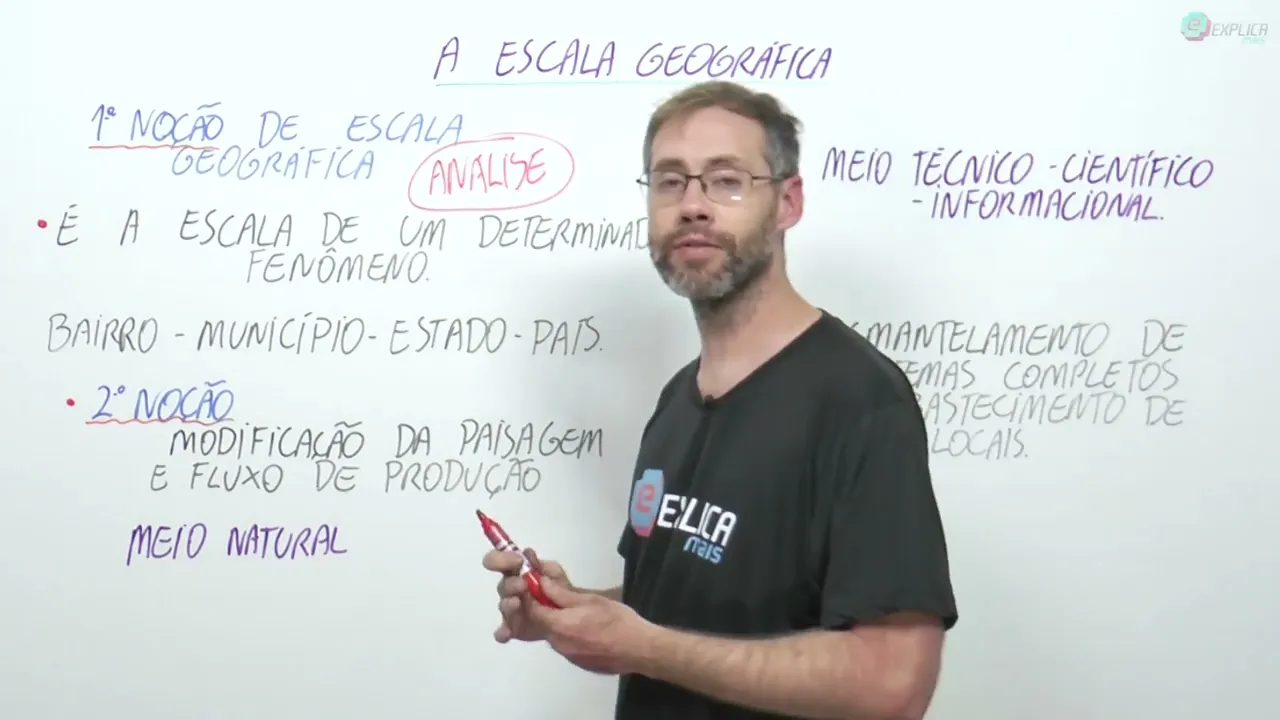 A ESCALA GEOGRÁFICA
1ª NOÇÃO DE ESCALA
GEOGRÁFICA
ANÁLISE
• É A ESCALA DE UM DETERMINAD
FENÔMENO.
BAIRRO - MUNICÍPIO - ESTADO - PAÍS.
• 2ª NOÇÃO
MODIFICAÇÃO DA PAISAGEM
E FLUXO DE PRODUÇÃO
MEIO NATURAL
MEIO TÉCNICO - CIENTÍFICO
- INFORMACIONAL.
MANTELAMENTO DE
EMAS COMPLETOS
ASTECIMENTO DE
LOCAIS.
e EXPLICA
mais
e EXPLICA
mais